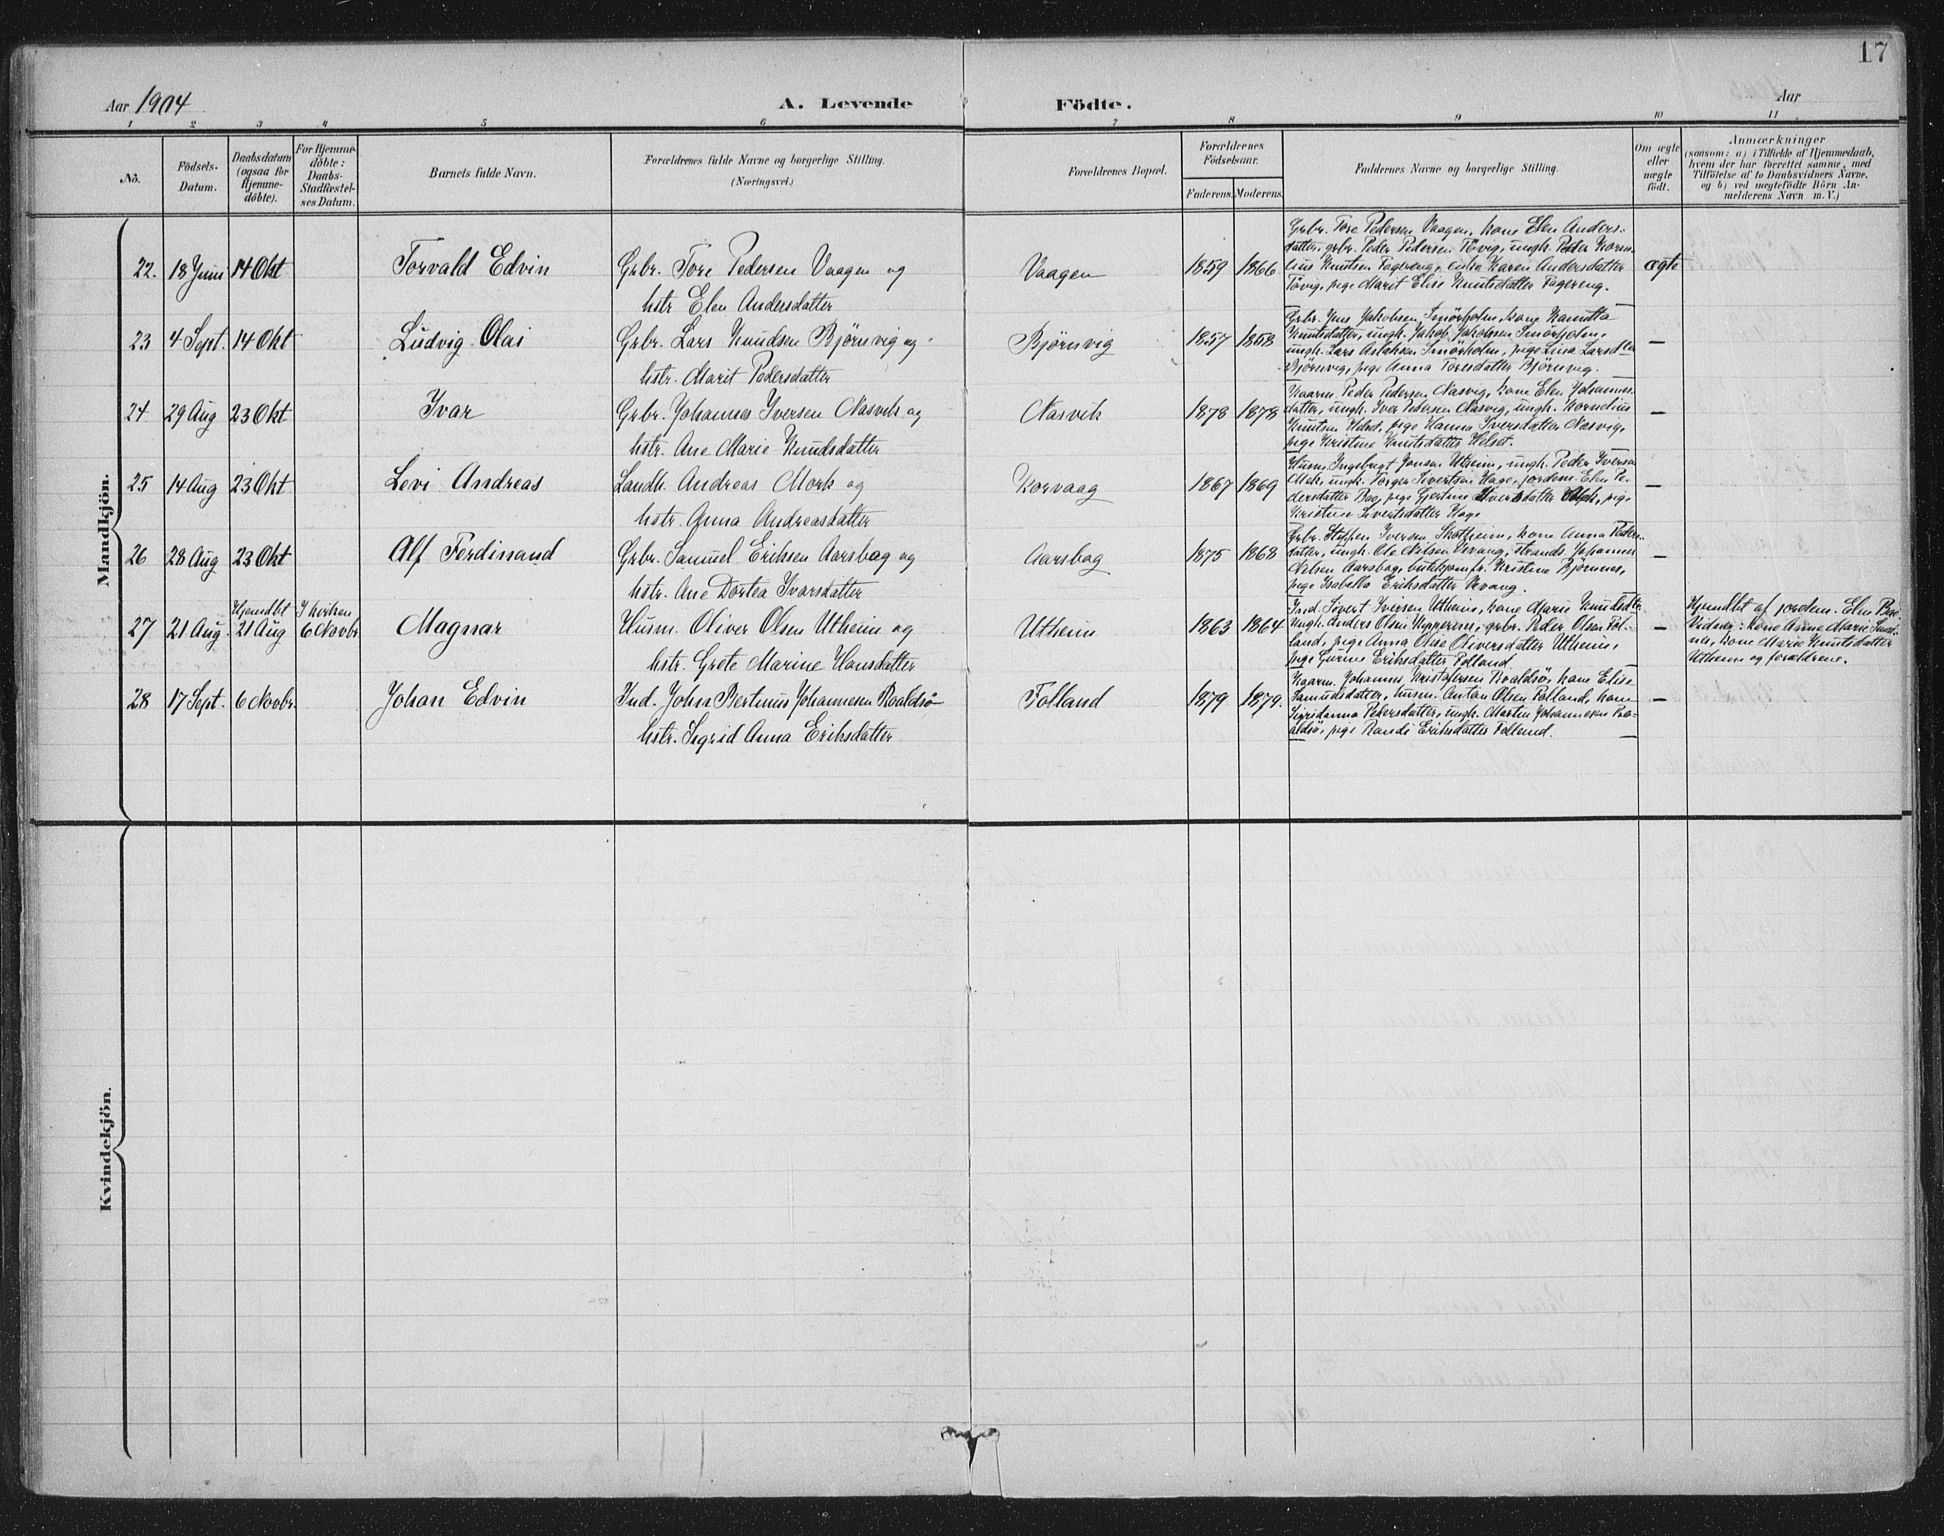 17
Aar 1904
A. Levende Födte.
Aar
1 2 3 4 5 6 7 8 9 10 11
No.
Födsels-Datum.
Daabsdatum (ogsaa for Hjemme-döbte).
For Hjemme-döbte: Daabs-Stadfæstel-ses Datum.
Barnets fulde Navn.
Forældrenes fulde Navne og borgerlige Stilling. (Næringsvei.)
Forældrenes Bopæl.
Forældrenes Födselsaar.
Faderens. Moderens.
Faddernes Navne og borgerlige Stilling.
Om ægte eller uægte födt.
Anmærkninger
(saasom: a) i Tilfælde af Hjemmedaab, hvem der har forrettet samme, med Tilföielse af to Daabsvidners Navne. og b) ved uægtefödte Börn An-melderens Navn m. V.)
Mandkjön.
22. 18 Juni 14 Okt Torvald Edvin Grbr. Tore Pedersen Vaagen og
hstr. Elen Andersdatter
Vaagen 1859 1866
Grbr. Tore Pedersen Vaagen, kone Elen Anders-
datter, grbr. Peder Pedersen Tövig, ungk. Peder Korne-
lius Knutsen Fagereng, enke Karen Andersdatter
Tövig, pige Marit Elise Knutsdatter Fagereng.
ægte
23 4 Sept. 14 Okt Ludvig Olai Grbr. Lars Knudsen Bjørnvig og
hstr. Marit Pedersdatter
Bjørnvig 1857 1858
Grbr. Jens Jakobsen Smörholm, kone
Knutsdatter, ungk. Jakob Jakobsen Smörholm,
ungk. Lars Aslaksen Smörholm, pige Lina Larsdtr
Bjørnvig, pige Anna Toresdatter Bjørnvig.
—
24 29 Aug 23 Okt Ivar Grbr. Johannes Iversen Nasvik og
hstr. Ane Marie Knudsdatter
Nasvik 1878 1878
Kaarm. Peder Pedersen Nasvig, kone Elen Johannes-
datter, ungk. Iver Pedersen Nasvig, ungk. Kornelius
Knutsen Helset, pige Hanna Iversdatter Nasvig,
pige Kristine Knutsdatter Helset.
—
25 14 Aug 23 Okt Levi Andreas Landh. Andreas Mork og
hstr. Anna Andreasdatter
Korvaag 1867 1869
Husm. Ingebrigt Jonsen Utheim, ungk. Peder Iversen
Mek, ungk. Torger Sivertsen Hage, jordem. Elen Pe-
dersdatter Boe, pige Gjertine datter pige
Kristine Sivertsdatter Hage
—
26 28 Aug 23 Okt Alf Ferdinand Grbr. Samuel Eriksen Aarsbag og
hstr. Ane Dortea Ivarsdatter
Aarsbag 1875 1868
Grbr. Steffen Iversen Skotheim, kone Anna Peders-
datter, ungk. Ole Nilsen Vevang, strands. Johannes
Nelsen Aarsbag, butikjomfr. Kristine Bjørnnes,
pige Isabella Eriksdatter Vevang.
—
27 21 Aug. Hjemdbt 21 Aug I kirken 6 Novbr Magnar Husm. Oliver Olsen Utheim og
hstr. Grete Marine Hansdatter
Utheim 1863 1864
Ind. Sivert Iversen Utheim, kone Marie Knudsdtr
ungk. Anders Olsen grbr. Peder Olsen Fol-
land, pige Anna Olise Oliversdatter Utheim,
pige Gurine Eriksdatter Folland.
—
Hjemdbt af jordem. Elen Boe
Vidner: kone Anne Marie
kone Marie Knutsdatter
Utheim og forældrene.
28 17 Sept. 6 Novbr. Johan Edvin Ind. John Bertinus Johannesen Roaldsø
hstr. Sigrid Anna Eriksdatter
Folland 1879 1879.
Kaarm. Johannes Kristofersen Roaldsö, kone Elise
Samuelsdatter, husm. Anton Olsen Folland, kone
Sigridanna Pedersdatter, ungk. Martin Johannesen Ro-
aldsö, pige Randi Eriksdatter Folland.
—
Kvindekjön.